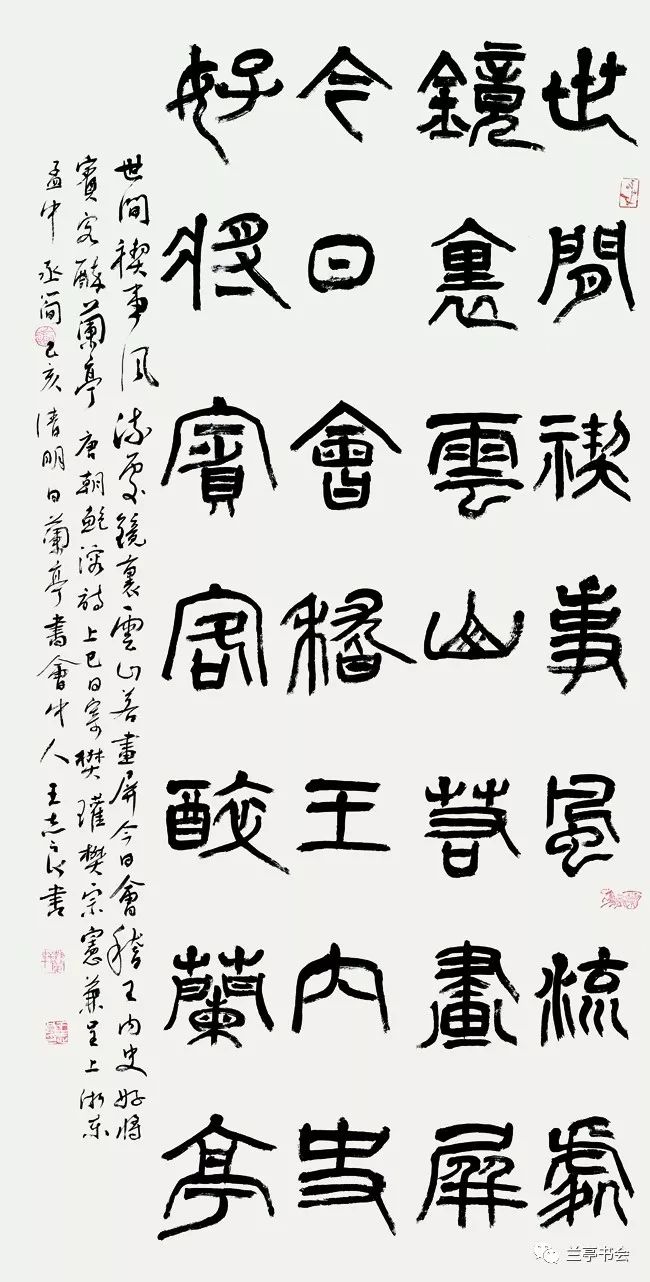 世間禊事風流處
鏡裏雲山若畫屏
今日會稽王內史
好將賓客醉蘭亭
世間禊事風流處鏡裏雲山若畫屏今日會稽王內史好將
賓客醉蘭亭 唐朝鮑溶詩上巳日寄樊瓘樊宗憲兼呈上浙東
孟中丞簡 己亥清明日蘭亭書會中人王志良書
兰亭书会